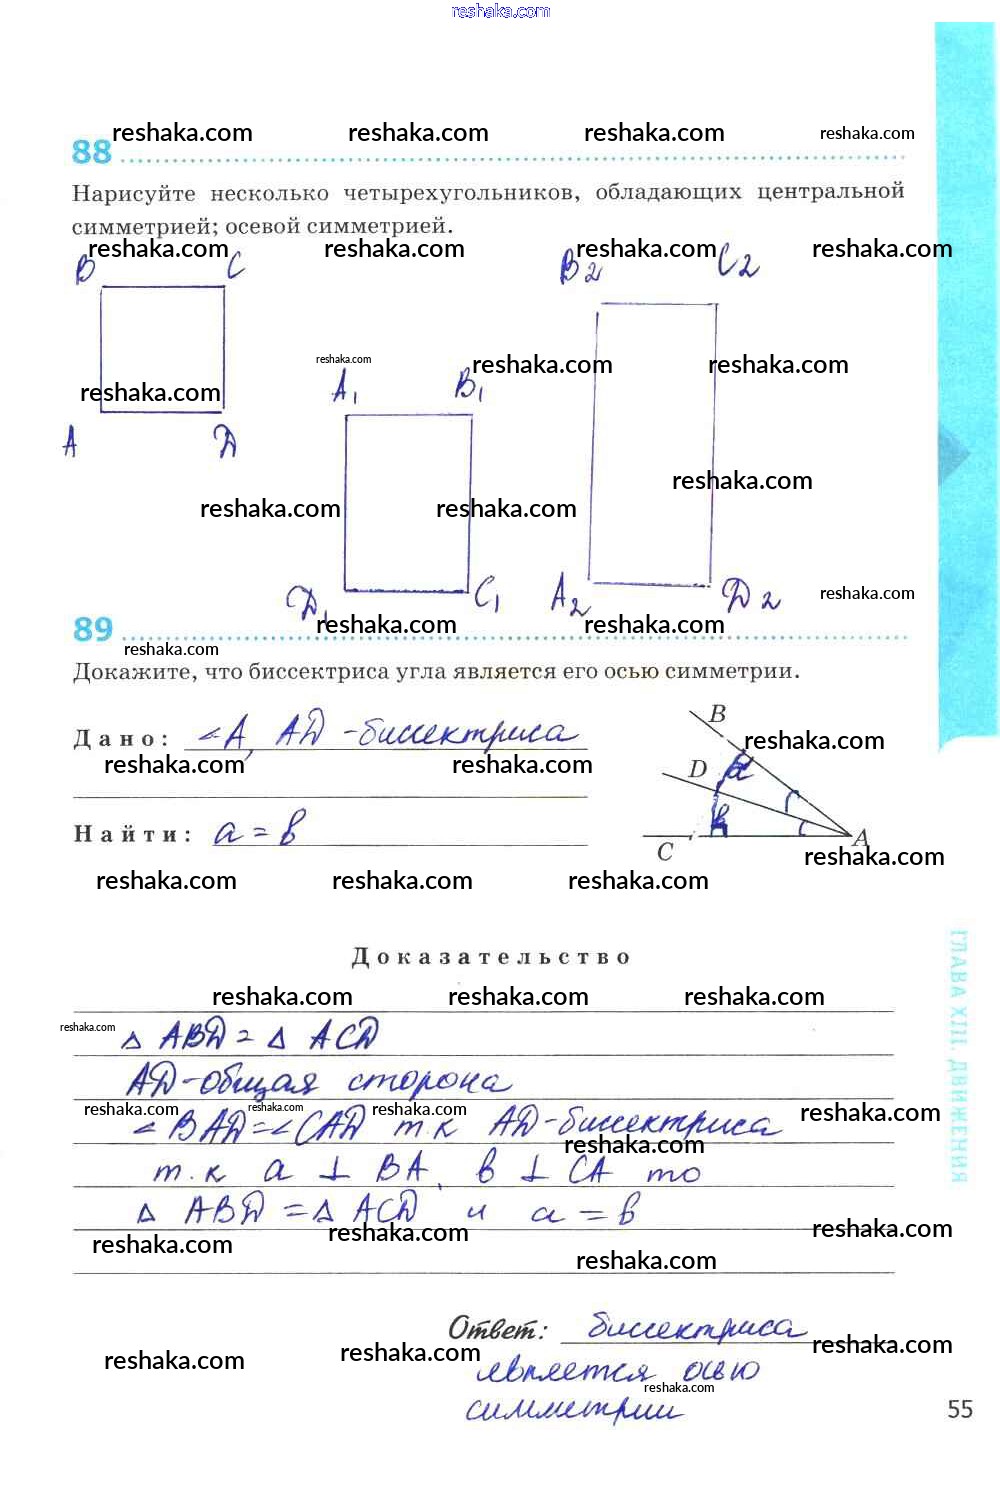 reshaka.com
reshaka.com reshaka.com reshaka.com reshaka.com
88
Нарисуйте несколько четырехугольников, обладающих центральной
симметрией; осевой симметрией.
reshaka.com reshaka.com reshaka.com reshaka.com
B C B2 C2
reshaka.com reshaka.com reshaka.com
reshaka.com A1 B1
A D
reshaka.com
reshaka.com reshaka.com
D1 C1 A2 D2 reshaka.com
89 reshaka.com reshaka.com
reshaka.com
Докажите, что биссектриса угла является его осью симметрии.
B
Дано: <A, AD - биссектриса
reshaka.com
reshaka.com reshaka.com
D a
Найти: a = b
b
C A
reshaka.com
reshaka.com reshaka.com reshaka.com
Доказательство
reshaka.com reshaka.com reshaka.com
reshaka.com
△ ABD = △ ACD
AD - общая сторона
reshaka.com reshaka.com reshaka.com reshaka.com
< BAD = < CAD т.к AD - биссектриса
reshaka.com
т.к a ⊥ BA, b ⊥ CA то
△ ABD = △ ACD и a = b
reshaka.com reshaka.com reshaka.com
reshaka.com
Ответ: биссектриса
reshaka.com reshaka.com reshaka.com
является осью
reshaka.com
симметрии
55
ГЛАВА XIII. ДВИЖЕНИЯ